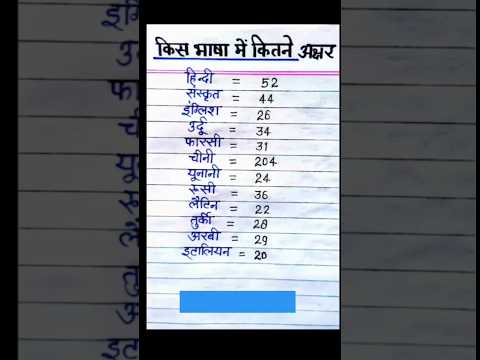 किस भाषा में कितने अक्षर
हिन्दी = 52
संस्कृत = 44
इंग्लिश = 26
उर्दू = 34
फारसी = 31
चीनी = 204
यूनानी = 24
रूसी = 36
लैटिन = 22
तुर्की = 28
अरबी = 29
इटालियन = 20